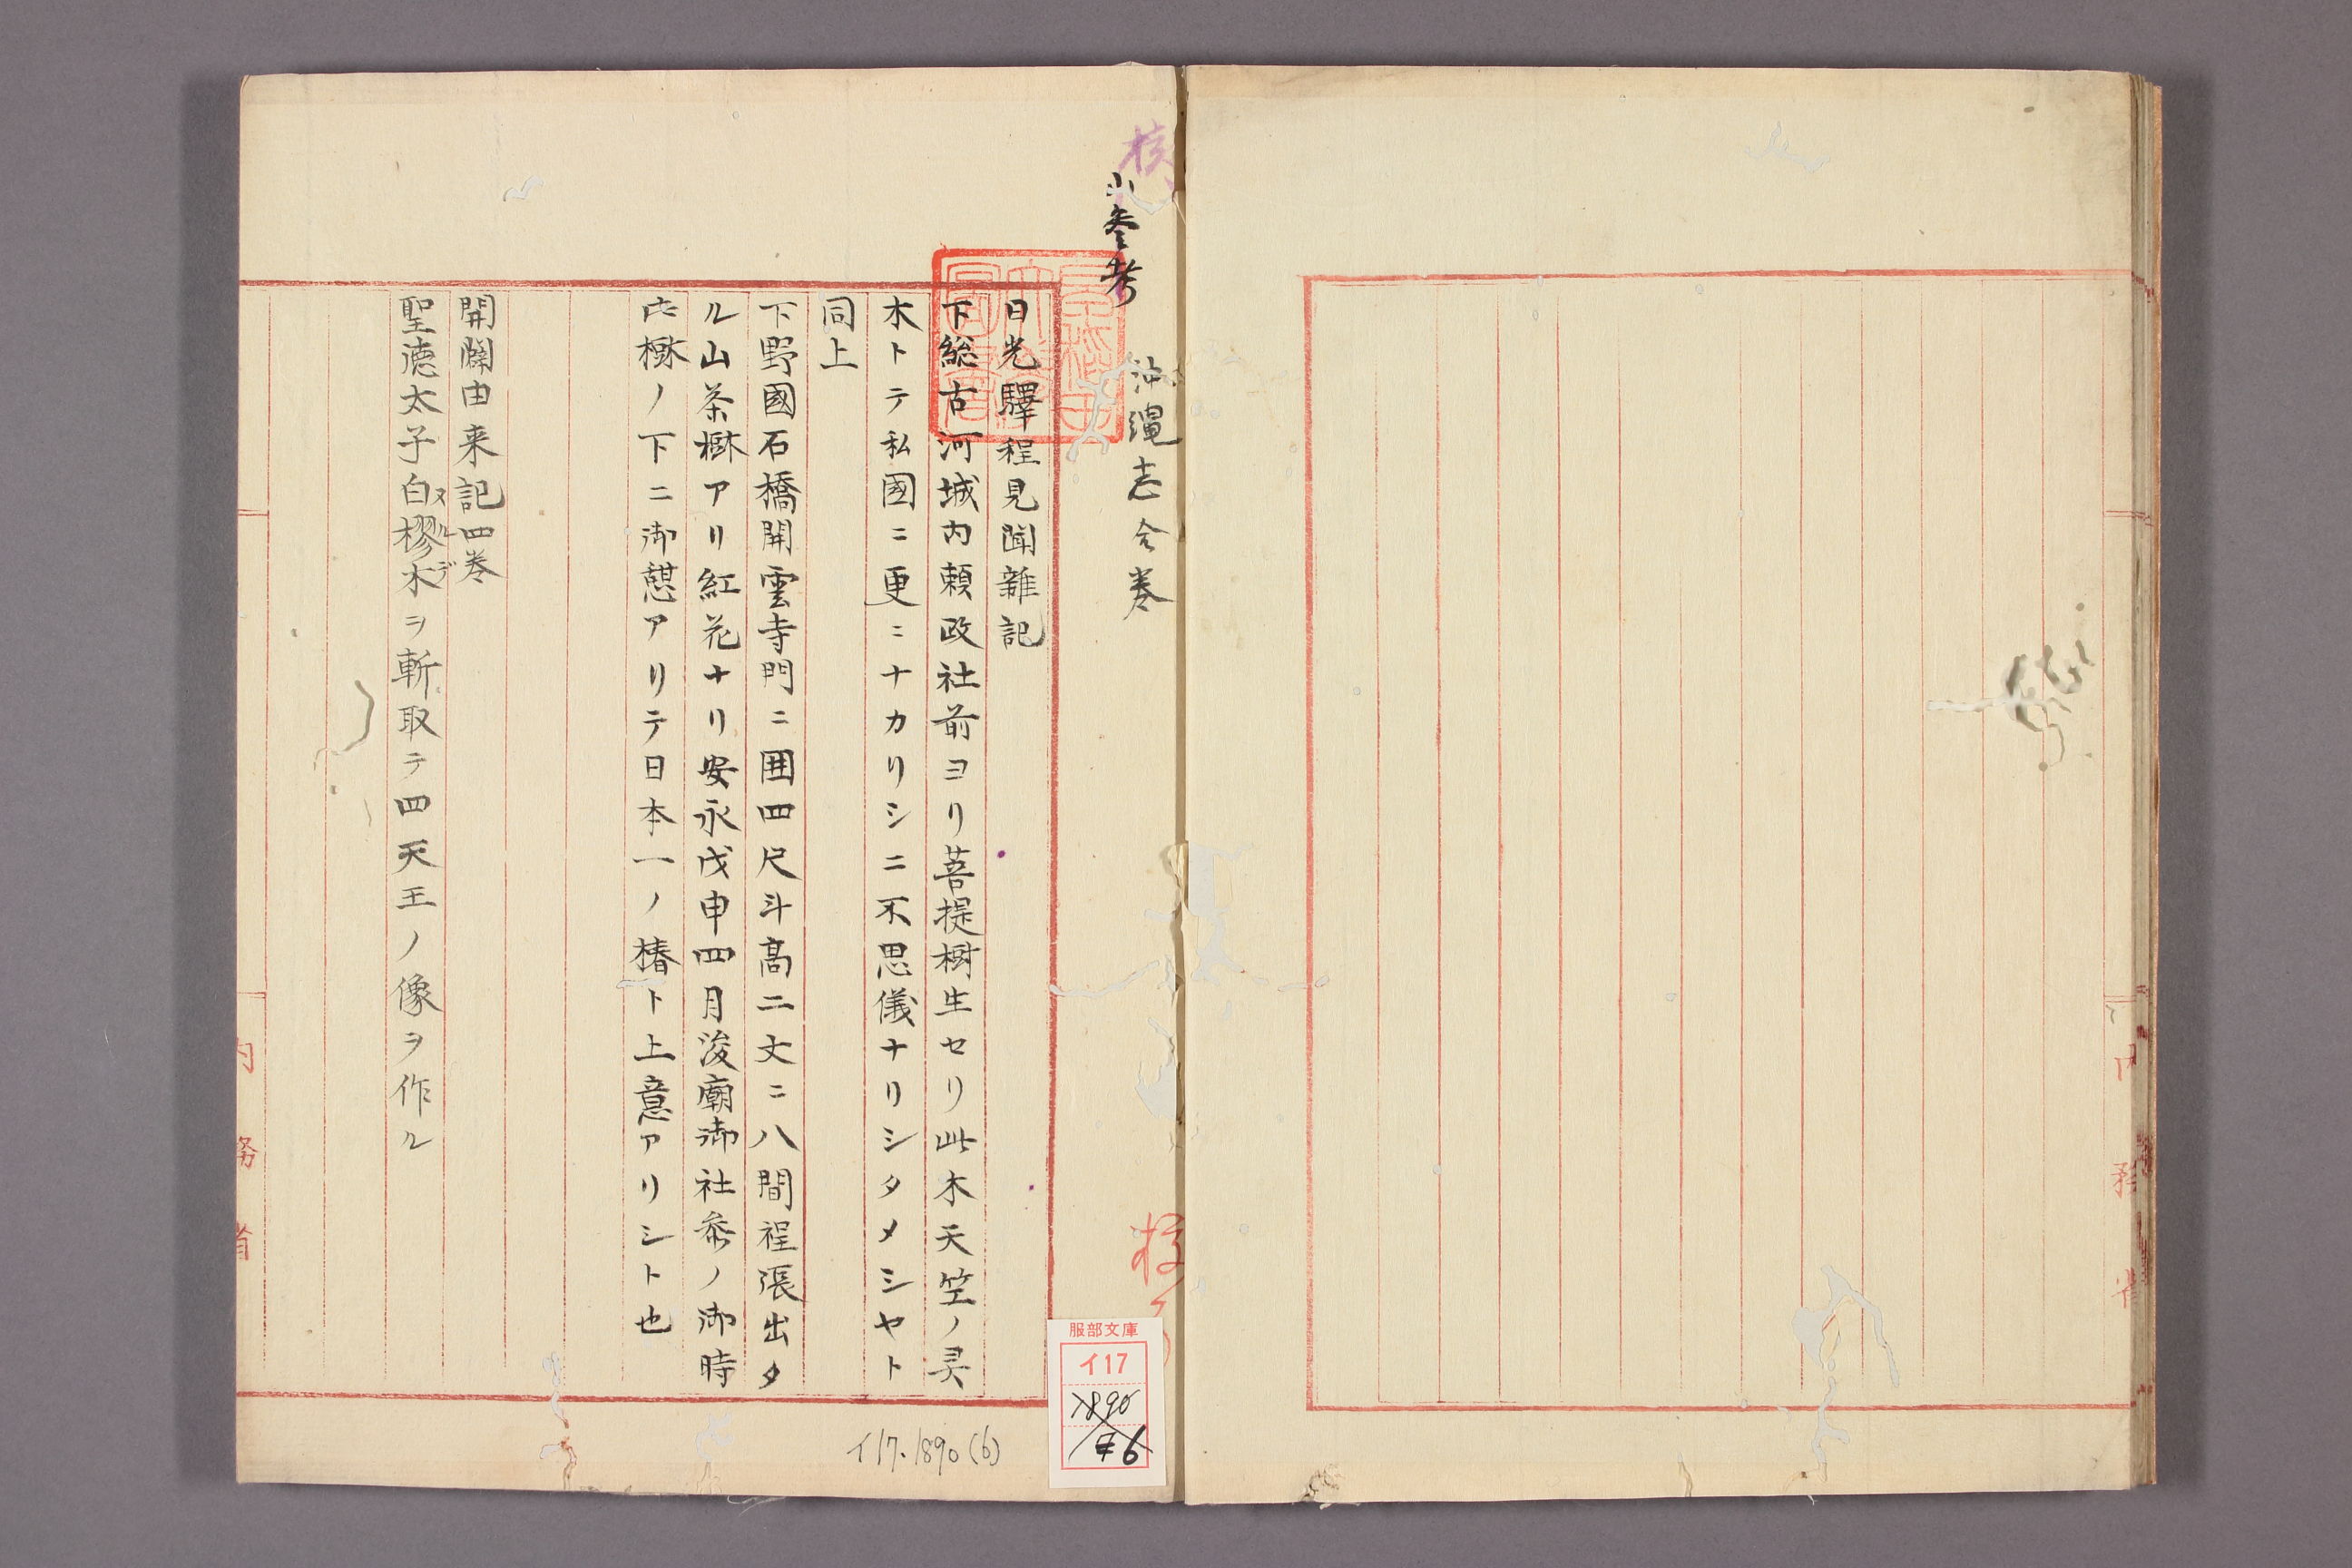 参考
沖縄志 全巻
日光驛程見聞雜記
下総古河城内頼政社前ヨリ菩提樹生セリ此木天笠ノ灵
木トテ私國ニ更ニナカリシニ不思儀ナリシタメシヤト
同上
下野國石橋開雲寺門ニ囲四尺斗高二丈ニ八間程張出タ
ル山茶樹アリ紅花ナリ安永戊申四月浚廟御社参ノ御時
此樹ノ下ニ御憩アリテ日本一ノ椿ト上意アリシト也
開闢由来記四巻
聖徳太子白樛木ヲ斬取テ四天王ノ像ヲ作ル
ヌルデ
内務省
服部文庫
イ17
1890
6
イ17.1890(6)
内務省